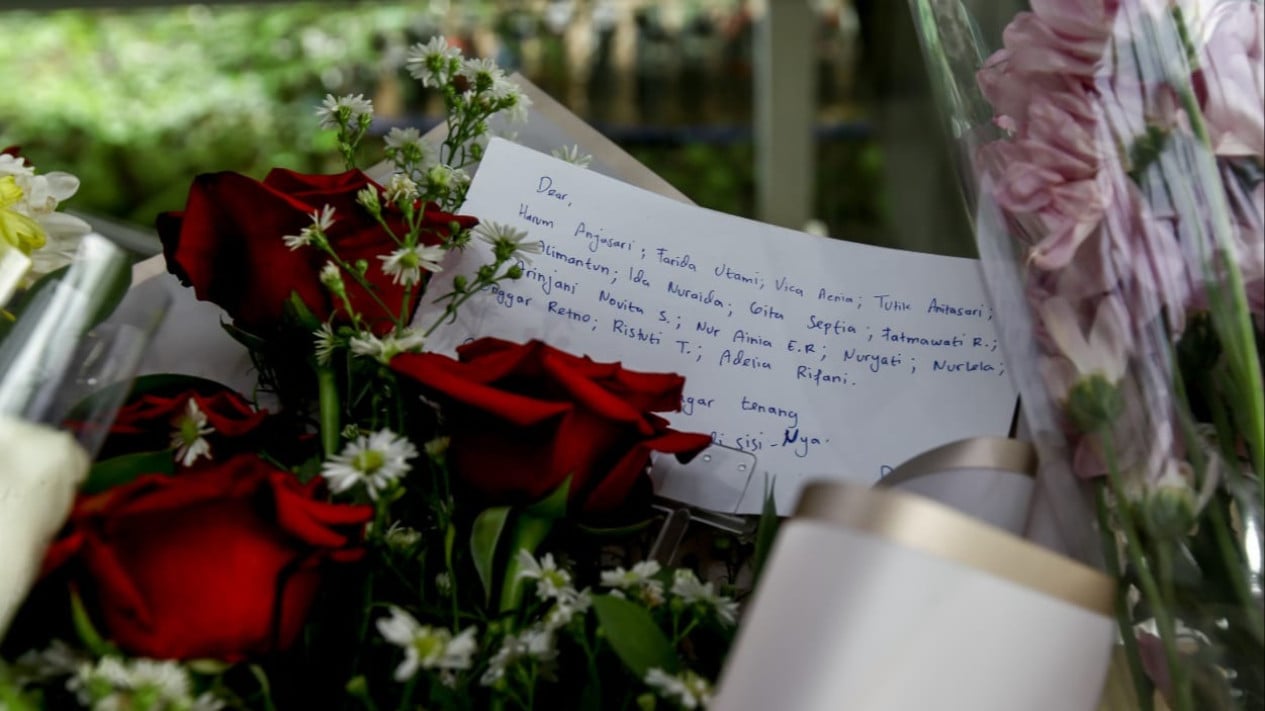 Dear,
Harum Anjasari; Farida Utami; Vica Aenia; Tutik Anitasari;
Alimantun; Ida Nuraida; Gita Septia; Fatmawati R.;
Arinjani Novita S.; Nur Ainia E.R; Nuryati; Nurlela;
Retno; Ristuti T.; Adelia Rifani.
agar tenang
di sisi-Nya.